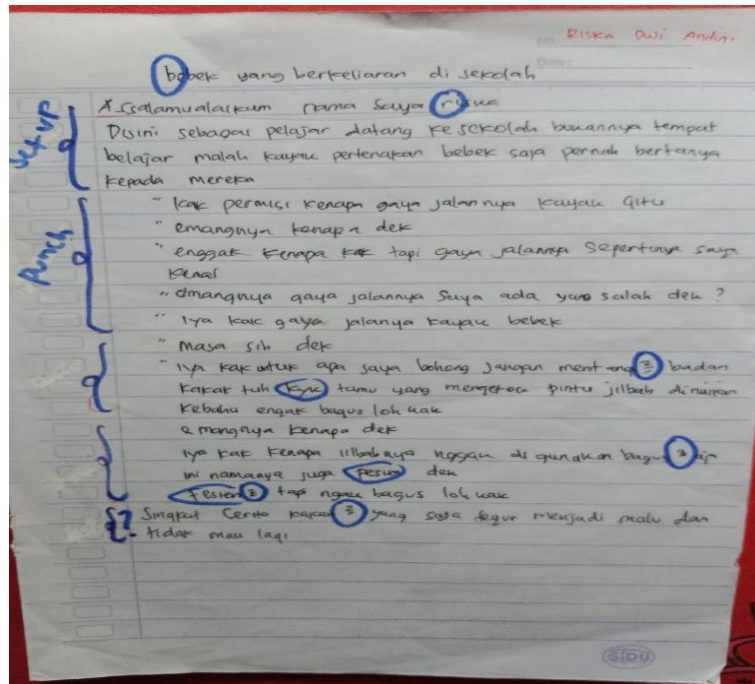 No. Riska Dwi Andini
Date:
bebek yang berkeliaran di sekolah
Assalamualaikum nama saya riska
Disini sebagai pelajar datang ke sekolah bukannya tempat
belajar malah kayak pertenakan bebek saya pernah bertanya
kepada mereka
" kak permisi kenapa gaya jalannya kayak gitu
" emangnya kenapa dek
" enggak kenapa kak tapi gaya jalannya sepertinya saya
kenal
" emangnya gaya jalannya saya ada yang salah dek ?
" iya kak gaya jalanya kayak bebek
" masa sih dek
" iya kak untuk apa saya bohong jangan mentang2 badan
kakak tuh kyk tamu yang mengetok pintu jilbab dinaikan
kebahu engak bagus loh kak
emangnya kenapa dek
iya kak kenapa jilbabnya nggak di gunakan bagus2 aja
ini namanya juga fesion dek
fesion2 tapi ngak bagus loh kak
Singkat cerita kakak2 yang saya tegur menjadi malu dan
tidak mau lagi
Set up
Punch
SIDU